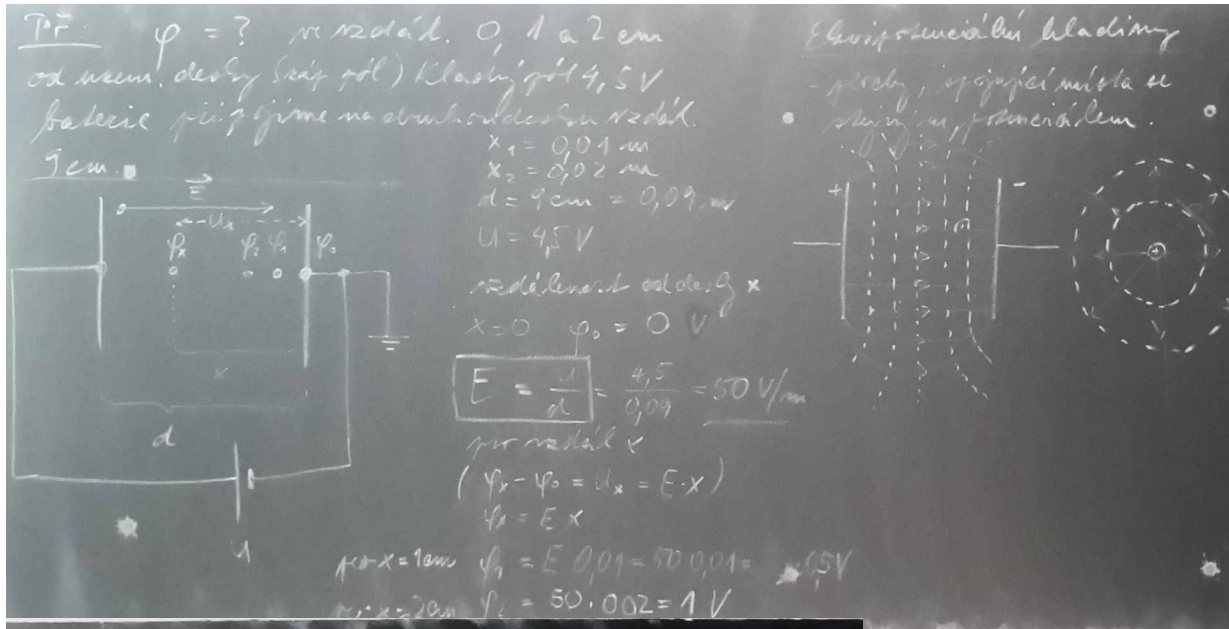 Př: φ = ? ve vzdál. 0, 1 a 2 cm
od uzem. desky (záp. pól) Kladný pól 4,5 V
baterie připojíme na druhou desku vzdál.
9 cm.
x₁ = 0,01 m
x₂ = 0,02 m
d = 9 cm = 0,09 m
U = 4,5 V
vzdálenost od desky x
x=0 φ₀ = 0 V
E = U/d = 4,5/0,09 = 50 V/m
pro vzdál x
( φₓ - φ₀ = Uₓ = E·x )
φₓ = E x
pro x = 1cm φ₁ = E 0,01 = 50 0,01 = 0,5V
x = 2cm φ₂ = 50 . 002 = 1 V
E
Uₓ
φₓ φ₂ φ₁ φ₀
x
d
U
Ekvipotenciální hladiny
- plochy, spojující místa se
stejným potenciálem.
+ -
+